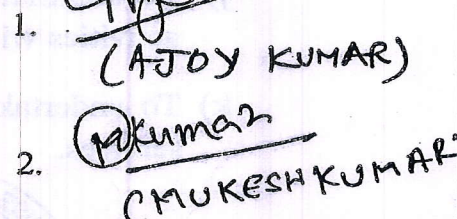 1.
(AJOY KUMAR)
2. Mkumar
(MUKESH KUMAR